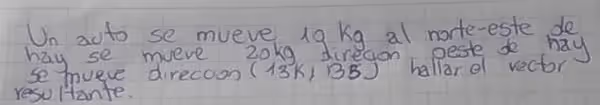 Un auto se mueve 19 Kg al norte-este de
hay se mueve 20kg direcion oeste de hay
se mueve direccion (13K, BB) hallar el vector
resultante.